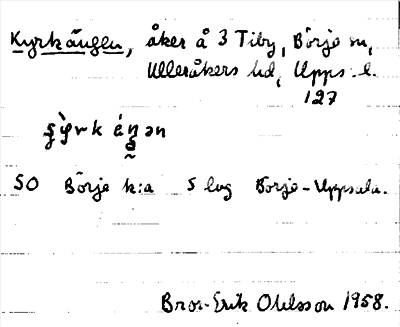 Kyrkängen, åker å 3 Tiby, Börje sn,
Ulleråkers hd, Upps. l.
127
SO Börje k:a s lvg Börje-Uppsala.
Bror-Erik Ohlsson 1958.